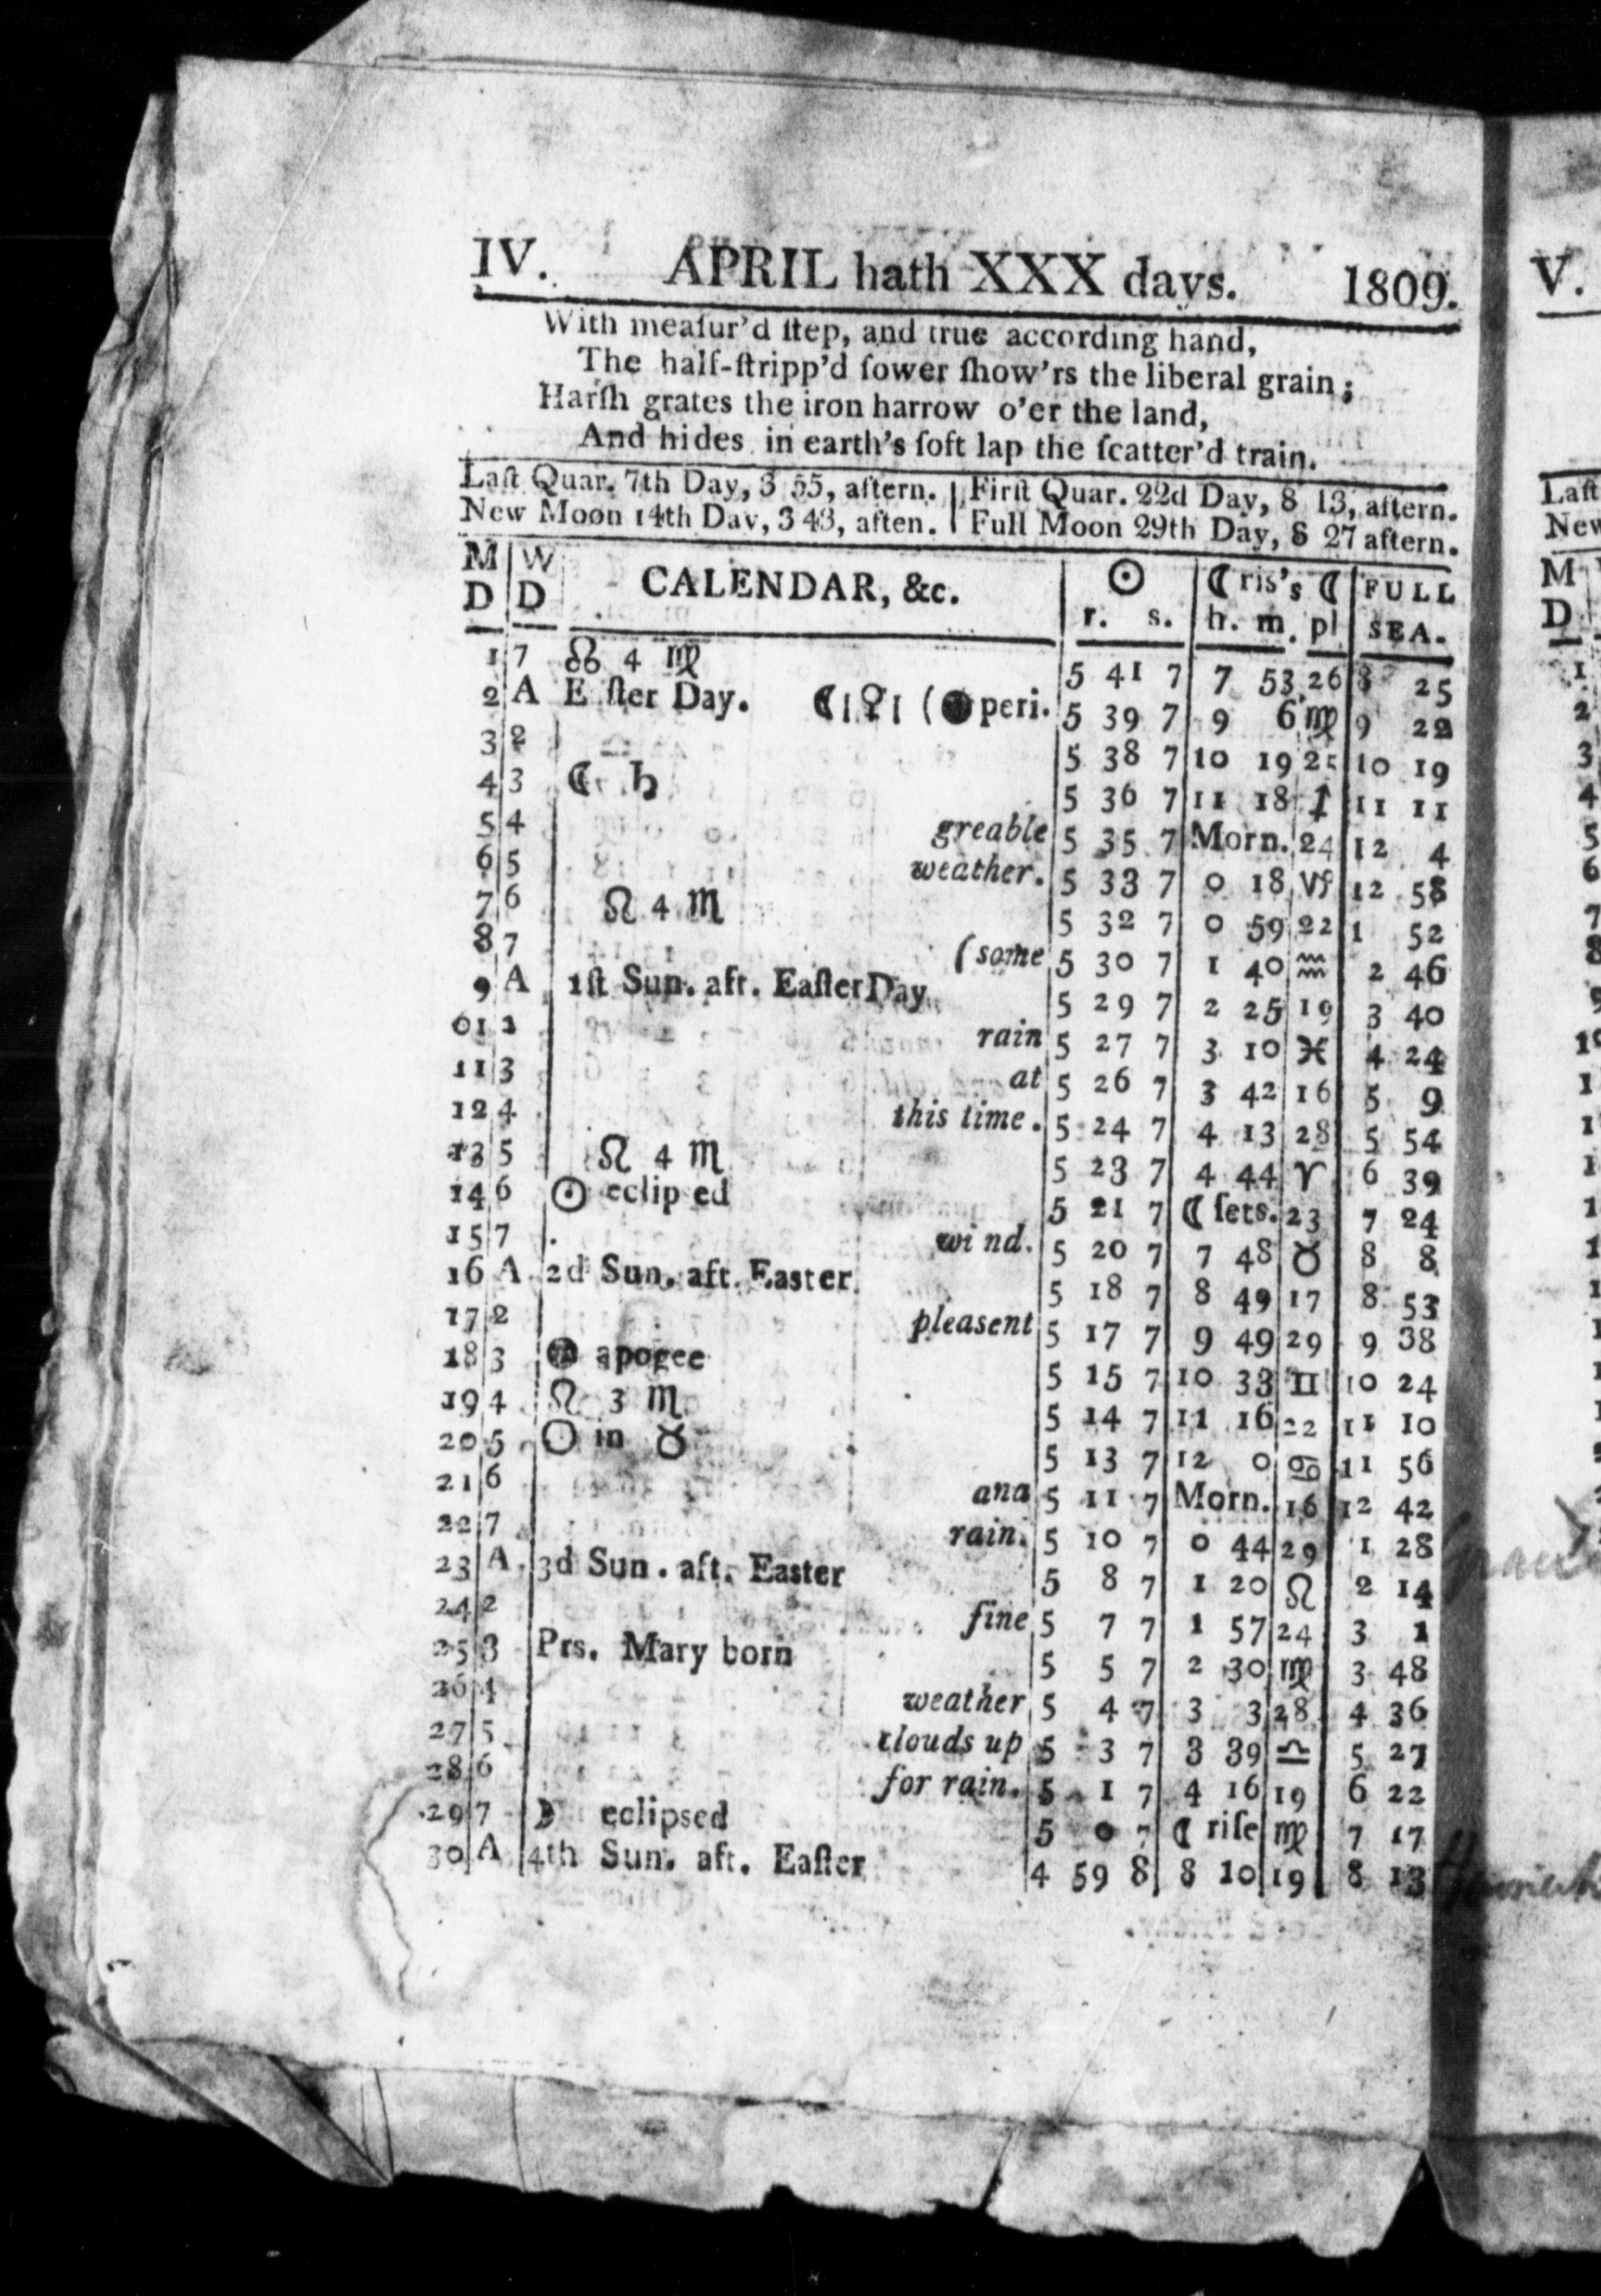 IV. APRIL hath XXX days. 1809.
With meaſur'd ſtep, and true according hand,
The half-ſtripp'd ſower ſhow'rs the liberal grain;
Harſh grates the iron harrow o'er the land,
And hides in earth's ſoft lap the ſcatter'd train.
Laſt Quar. 7th Day, 3 55, aftern. | Firſt Quar. 22d Day, 8 13, aftern.
New Moon 14th Day, 3 43, aften. | Full Moon 29th Day, 8 27 aftern.
M D W D CALENDAR, &c. ☉ r. s. ☾ ris's h. m. ☾ pl FULL SEA.
1 7 ☊ 4 ♍ 5 41 7 7 53 26 8 25
2 A E ſter Day. ☾ ♀ ( peri. 5 39 7 9 6 ♍ 9 22
3 2 5 38 7 10 19 25 10 19
4 3 ☾ ♄ 5 36 7 11 18 ♐ 11 11
5 4 greable 5 35 7 Morn. 24 12 4
6 5 weather. 5 33 7 0 18 ♑ 12 58
7 6 ♌ 4 ♏ 5 32 7 0 59 22 1 52
8 7 (some 5 30 7 1 40 ♒ 2 46
9 A 1ſt Sun. aft. Eaſter Day 5 29 7 2 25 19 3 40
01 2 rain 5 27 7 3 10 ♓ 4 24
11 3 at 5 26 7 3 42 16 5 9
12 4 this time. 5 24 7 4 13 28 5 54
13 5 ♌ 4 ♏ 5 23 7 4 44 ♈ 6 39
14 6 ☉ eclip ed 5 21 7 ☾ ſets. 23 7 24
15 7 wi nd. 5 20 7 7 48 ♉ 8 8
16 A 2d Sun. aft. Easter 5 18 7 8 49 17 8 53
17 2 pleasent 5 17 7 9 49 29 9 38
18 3 apogee 5 15 7 10 33 ♊ 10 24
19 4 ♌ 3 ♏ 5 14 7 11 16 22 11 10
20 5 ☉ in ♉ 5 13 7 12 0 ♋ 11 56
21 6 ana 5 11 7 Morn. 16 12 42
22 7 rain. 5 10 7 0 44 29 1 28
23 A 3d Sun. aft. Easter 5 8 7 1 20 ♌ 2 14
24 2 fine 5 7 7 1 57 24 3 1
25 3 Prs. Mary born 5 5 7 2 30 ♍ 3 48
26 4 weather 5 4 7 3 3 28 4 36
27 5 clouds up 5 3 7 3 39 ♎ 5 27
28 6 for rain. 5 1 7 4 16 19 6 22
29 7 ☽ eclipsed 5 0 7 ☾ riſe ♍ 7 17
30 A 4th Sun. aft. Eaſter 4 59 8 8 10 19 8 13
V.
Laſt
New
M
D
1
2
3
4
5
6
7
8
9